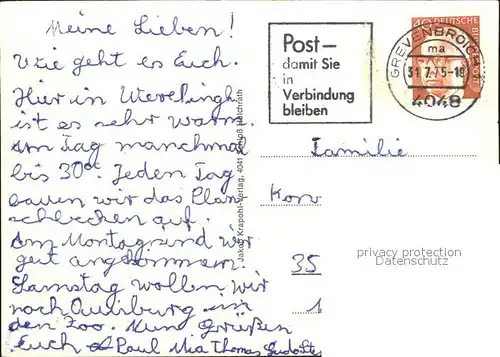 Meine Lieben!
Wie geht es Euch.
Hier in Wevelingh
ist es sehr warm.
Am Tag manchmal
bis 30° Jeden Tag
bauen wir das Plan
schbecken auf.
Am Montag sind wir
gut angekommen.
Samstag wollen wir
nach Duisburg in
den Zoo. Nun Grüßen
Euch Paul Mia Thomas
Jakob Krapohl-Verlag, 4041 Schloß
Post–
damit Sie
in
Verbindung
bleiben
40 DEUTSCHE
GREVENBROICH
ma
31.7.75-18
4048
Familie
Kon
privacy protection
Datenschutz
35